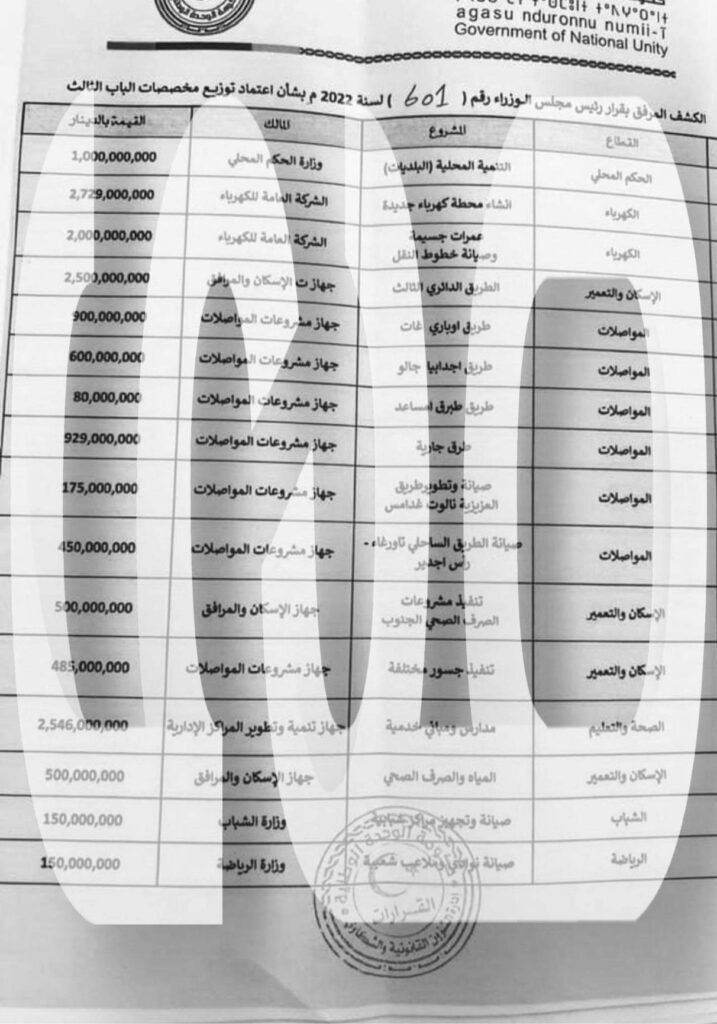 agasu nduronnu numii-ī
Government of National Unity
الكشف المرفق بقرار رئيس مجلس الوزراء رقم ( 601 ) لسنة 2022 م بشأن اعتماد توزيع مخصصات الباب الثالث
القطاع المشروع المالك القيمة بالدينار
الحكم المحلي التنمية المحلية (البلديات) وزارة الحكم المحلي 1,000,000,000
الكهرباء انشاء محطة كهرباء جديدة الشركة العامة للكهرباء 2,729,000,000
الكهرباء عمرات جسيمة وصيانة خطوط النقل الشركة العامة للكهرباء 2,000,000,000
الإسكان والتعمير الطريق الدائري الثالث جهاز الإسكان والمرافق 2,500,000,000
المواصلات طريق اوباري غات جهاز مشروعات المواصلات 900,000,000
المواصلات طريق اجدابيا جالو جهاز مشروعات المواصلات 600,000,000
المواصلات طريق طبرق امساعد جهاز مشروعات المواصلات 80,000,000
المواصلات طرق جارية جهاز مشروعات المواصلات 929,000,000
المواصلات صيانة وتطويرطريق العزيزية نالوت غدامس جهاز مشروعات المواصلات 175,000,000
المواصلات صيانة الطريق الساحلي تاورغاء - راس اجدير جهاز مشروعات المواصلات 450,000,000
الإسكان والتعمير تنفيذ مشروعات الصرف الصحي الجنوب جهاز الإسكان والمرافق 500,000,000
الإسكان والتعمير تنفيذ جسور مختلفة جهاز مشروعات المواصلات 485,000,000
الصحة والتعليم مدارس ومباني خدمية جهاز تنمية وتطوير المراكز الإدارية 2,546,000,000
الإسكان والتعمير المياه والصرف الصحي جهاز الإسكان والمرافق 500,000,000
الشباب صيانة وتجهيز مراكز شبابية وزارة الشباب 150,000,000
الرياضة صيانة نوادي وملاعب شعبية وزارة الرياضة 150,000,000
حكومة الوحدة الوطنية
القرارات
إدارة الشؤون القانونية والشكاوى